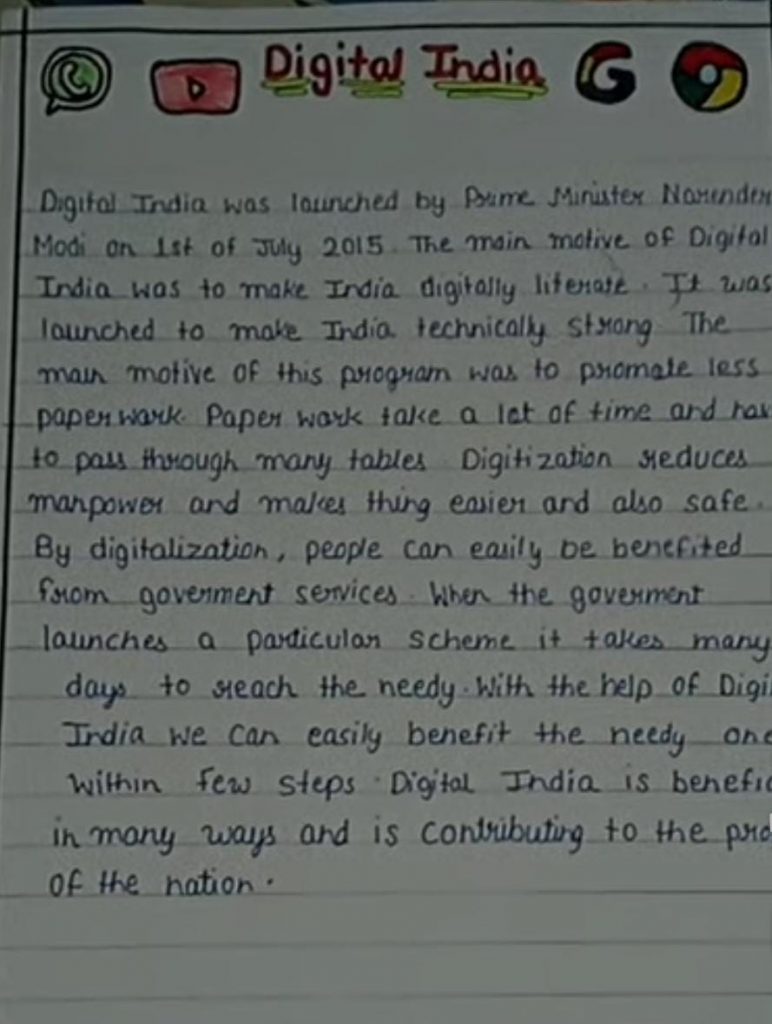 Digital India
Digital India was launched by Prime Minister Narender
Modi on 1st of July 2015. The main motive of Digital
India was to make India digitally literate. It was
launched to make India technically strong The
main motive of this program was to promote less
paperwork. Paper work take a lot of time and
to pass through many tables. Digitization reduces
manpower and makes thing easier and also safe.
By digitalization, people can easily be benefited
from goverment services. When the goverment
launches a particular scheme it takes many
days to reach the needy. With the help of
India we can easily benefit the needy
within few steps. Digital India is
in many ways and is contributing to the
of the nation.